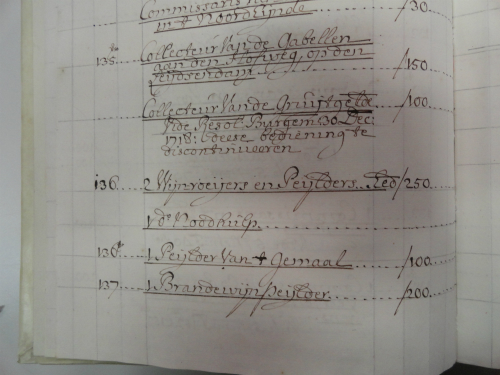 Commissaris
in 't Noordijnde /30
135 Collecteur Van de Gabellen
aan den Hofweg, op den
Leijdsendam /150
Collecteur Van de Gruijtgelde /100
Vide Resol: Burgem: 30 Dec:
1718: deese bediening te
discontinueeren
136 2 Wijnroeijers en Peijlders. /250
Vde Noodhulp.
136 1 Peijlder Van 't Gemaal /100
137 1 Brandewijn Peijlder /200